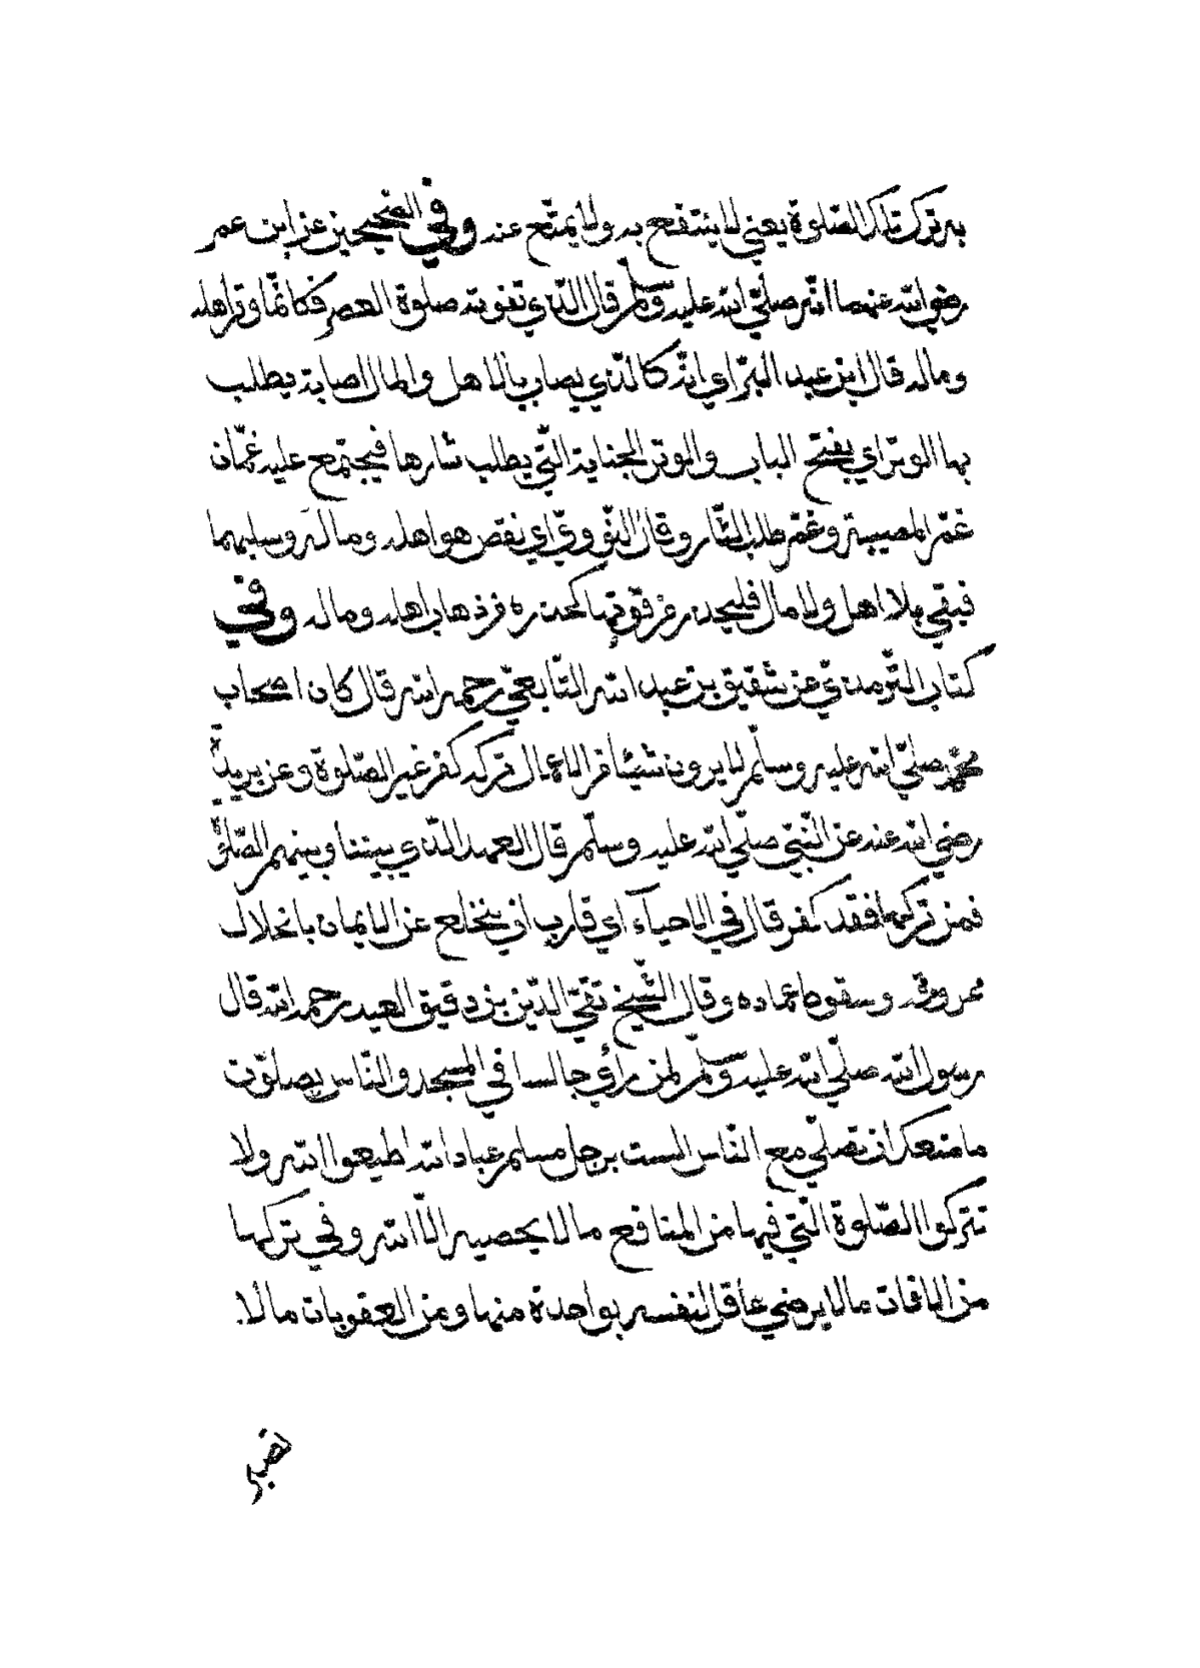 بترك تلك الصّلوة يعني لا ينتفع به ولا يمتّع عنه وفي الصّحيحين عن ابن عمر
رضي الله عنهما انّه صلّى الله عليه وسلّم قال الّذي تفوته صلوة العصر فكانّما وتر اهله
وماله قال ابن عبد البرّ اي انّه كالّذي يصاب بالاهل والمال اصابة يطلب
بها الوتر اي بفتح الباب والوتر الجناية الّتي يطلب ثارها فيجتمع عليه غمّان
غمّ المصيبة وغمّ طلب الثّار وقال النّووي اي نقص هو اهله وماله وسلبهما
فبقي بلا اهل ولا مال فليحذر من فوتها كحذره من ذهاب اهله وماله وفي
كتاب التّرمذي عن شقيق بن عبد الله التّابعي رحمه الله قال كان اصحاب
محمّد صلّى الله عليه وسلّم لا يرون شيئا من الاعمال تركه كفر غير الصّلوة وعن بريدة
رضي الله عنه عن النّبيّ صلّى الله عليه وسلّم قال العهد الّذي بيننا وبينهم الصّلوة
فمن تركها فقد كفر قال في الاحياء اي قارب ان ينخلع عن الايمان بانحلال
عروته وسقوط عماده وقال الشّيخ تقيّ الدّين بن دقيق العيد رحمه الله قال
رسول الله صلّى الله عليه وسلّم لمن رأى جالسا في المسجد والنّاس يصلّون
ما منعك ان تصلّي مع النّاس الست برجل مسلم عباد الله اطيعوا الله ولا
تتركوا الصّلوة الّتي فيها من المنافع ما لا يحصيه الّا الله وفي تركها
من الافات ما لا يرضي عاقل لنفسه بواحدة منها ومن العقوبات ما لا